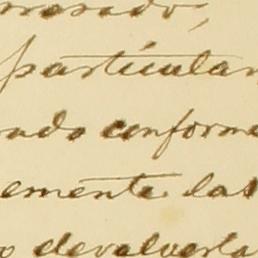 morado,
particular
ando conforme
emente las
o devolverla